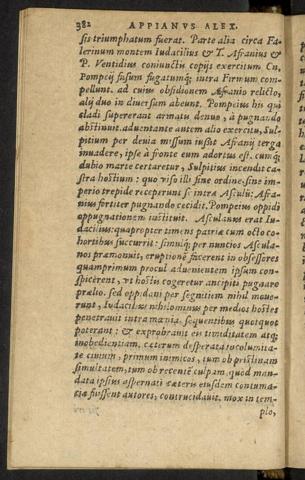 382 APPIANVS ALEX.
sis triumphatum fuerat. Parte alia circa Fa-
lerinum montem Iudacilius & T. Afranius &
P. Ventidius coniunctis copijs exercitum Cn.
Pompeij fusum fugatumq; intra Firmum com-
pellunt. ad cuius obsidionem Afranio relicto,
alij duo in diuersum abeunt. Pompeius his qui
cladi supererant armatu denuo, à pugnando
abstinuit. aduentante autem alio exercitu, Sul-
pitium per deuia missum iussit Afranij terga
inuadere, ipse à fronte eum adortus est. cumq;
dubio marte certaretur, Sulpitius incendit ca-
stra hostium: quo viso illi sine ordine, sine im-
perio trepide receperunt se intra Asculū: Afra-
nius fortiter pugnando cecidit. Pompeius oppidi
oppugnationem instituit. Asculanus erat Iu-
dacilius: quapropter timens patriæ cum octo co-
hortibus succurrit: simulq; per nuncios Ascula-
nos præmonuit, eruptionē facerent in obsessores
quamprimum procul aduenientem ipsum con-
spicerent, vt hostis cogeretur ancipiti pugnare
prælio. sed oppidani per segnitiem nihil moue-
runt, Iudacilius nihilominus per medios hostes
penetrauit intra mœnia. sequentibus quotquot
poterant: & exprobrauit eis timiditatem atq;
inobedientiam. cæterum desperata incolumita-
te ciuium, primum inimicos, tum ob pristinam
simultatem, tum ob recentē culpam quòd man-
data ipsius aspernati cæteris eiusdem contuma-
ciæ fuissent autores, contrucidauit. mox in tem-
plo,